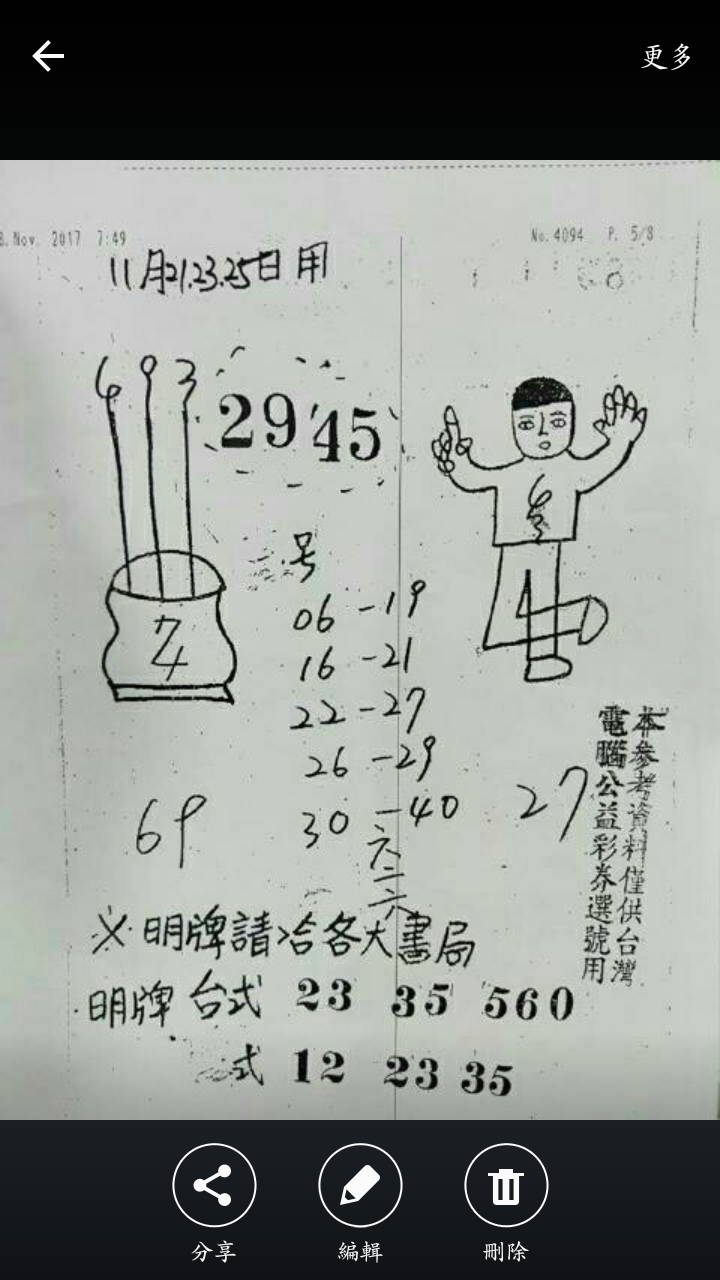 更多
8.Nov. 2017 7:49
No.4094 P. 5/8
11月21.23.25日用
6 9 3
29 45
号
06 - 19
16 - 21
22 - 27
26 - 29
30 - 40
六二六
69
27
本參考資料僅供台灣
電腦公益彩券選號用
※明牌請洽各大書局
明牌 台式 23 35 560
式 12 23 35
分享
編輯
刪除